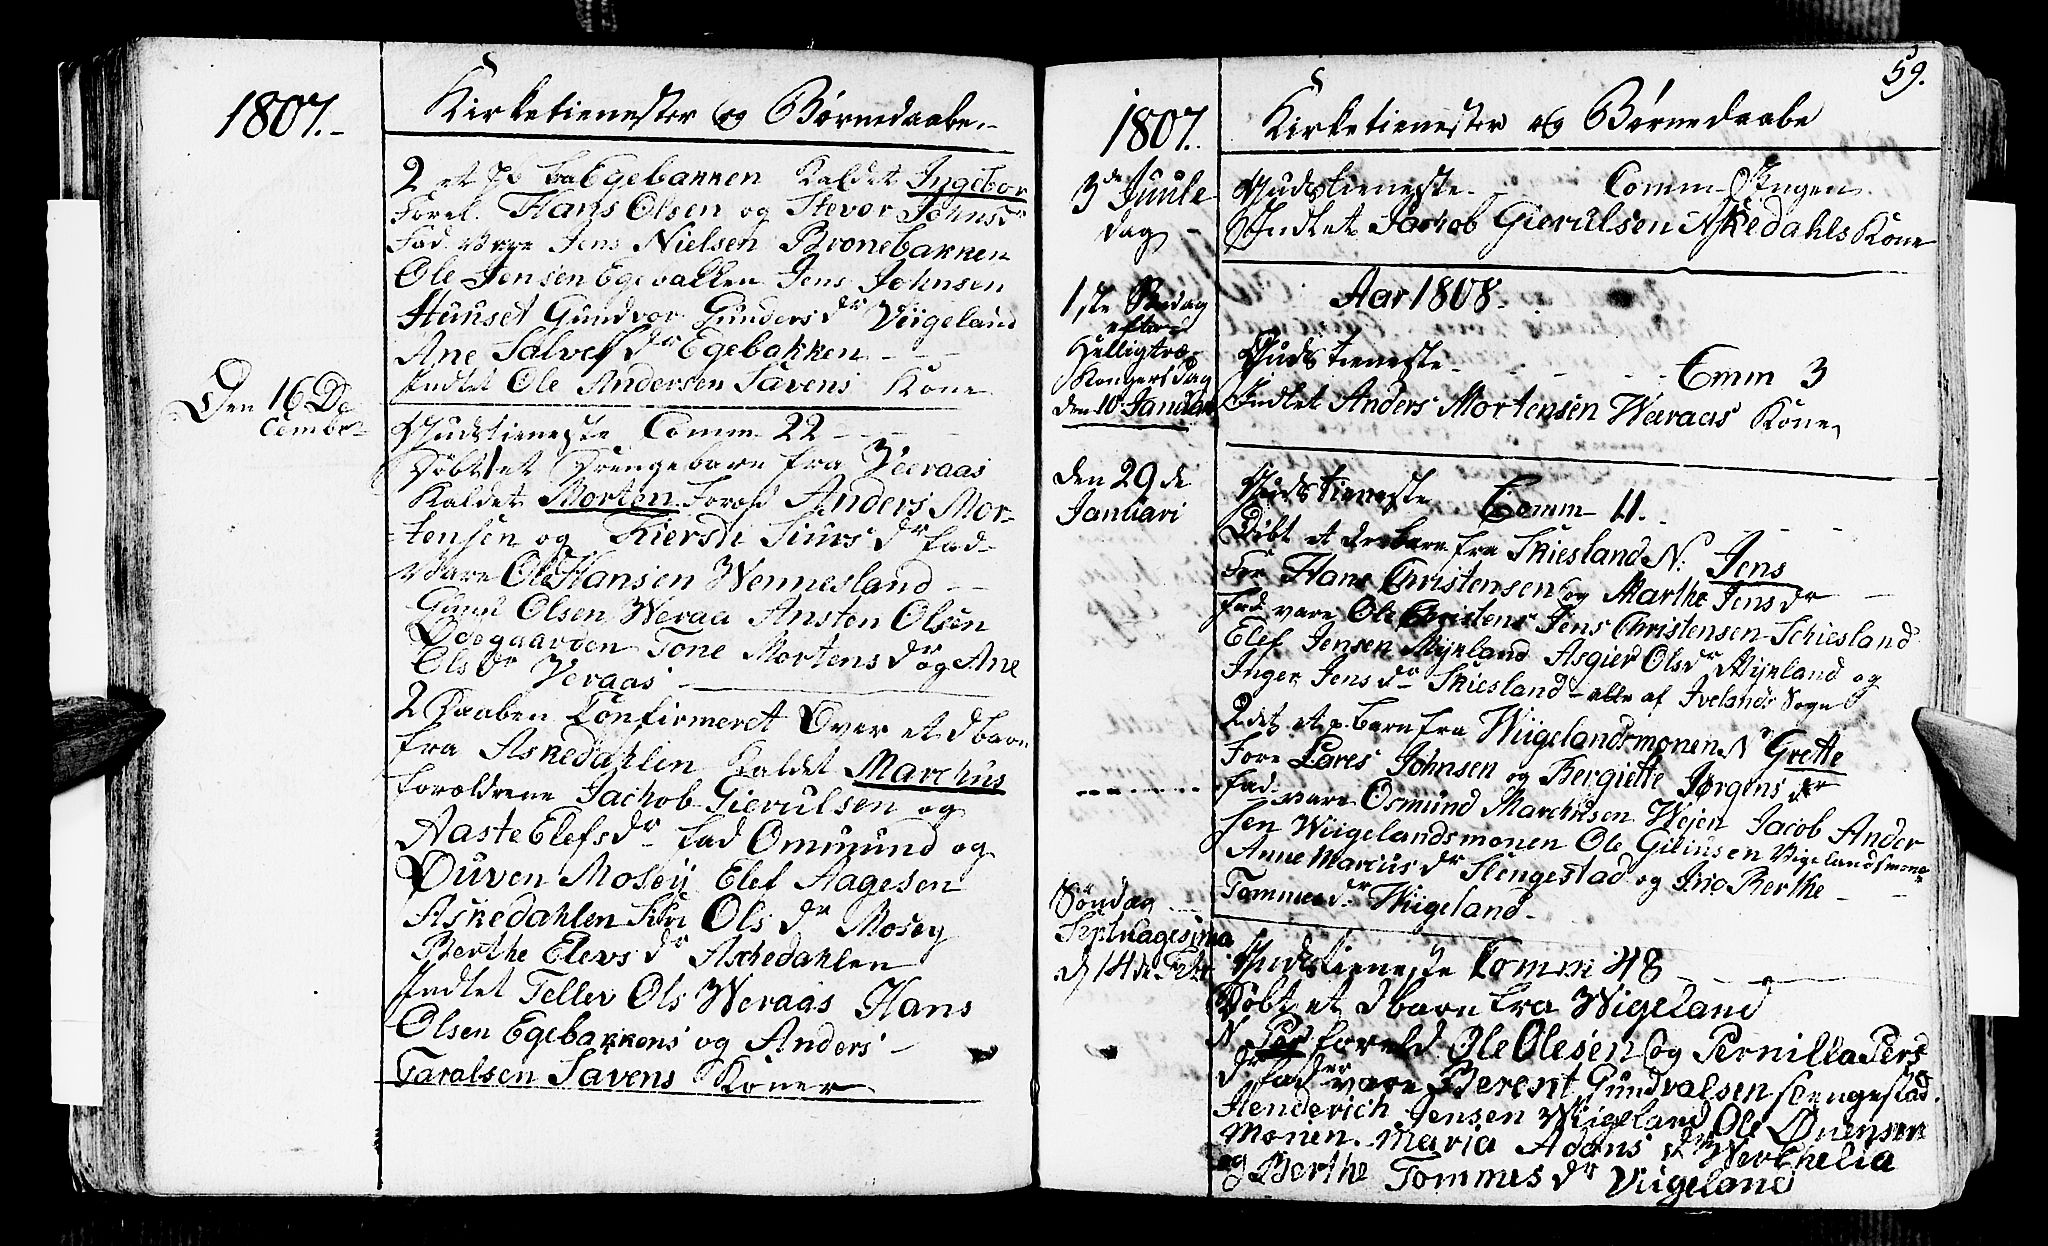 1807.-
Kirketienester og Børnedaabe.-
2 et fra Egebakken Kaldet Ingebor
Forel. Hans Olsen og Stevor Johnsdr
Fad. vare Jens Nielsen Bronebakken
Ole Jensen Egeballen Jens Johnsen
Hunset Gundvor Gundersdr Viigeland
Ane Salvesdr Egebakken - - -
Indlet Ole Andersen Savens Kone
Den 16 De
cembr
Gudstieneste Comm 22 - - -
Døbt 1 et Drengebarn fra Veeraas
Kaldet Morten Foræl Anders Mor-
tensen og Kiersti Siursdr fad-
vare Ole Hansen Wennesland - -
Gund Olsen Weraa Ansten Olsen
Ødegaarden Tone Mortensdr og Ane
Olsdr Veraas -
2 Daaben Confirmeret Over et dbarn
fra Askedahlen Kaldet Marchus
forældrene Jachob Gierulsen og
Aaste Elefsdr fad Ommund og
Ouven Mosey Elef Aagesen
Askedahlen Siri Olsdr Mosey
Berthe Elevsdr Aschedahlen
Indlet Tellev Ols Weraas Hans
Olsen Egebakkens og Anders
Taralsen Savens Koner
59.
1807.
Kirketienester og Børnedaabe
3de Juule
dag -
Gudstieneste - Comm Ingen
Indlet Jacob Gierulsen Askedahls Kone
Aar 1808.
1ste Søndag
efter
Helligtre
Kongersdag
den 10 Januar
Gudstieneste - - - - Comm 3
Indlet Anders Mortensen Weraas Kone
den 29de
Januari
Gudstieneste Comm 11. - - -
Døbt et drebarn fra Skiesland N: Jens
For Hans Christensen og Marthe Jensdr -
fad vare Ole Christens Jens Christensen Schiesland
Elef Jensen Mykland Asgier Olsdr Mykland og
Inger Jensdr Skiesland - alle af Ivelands Sogn
2det et p. barn fra Wiigelandsmonen N Grette
Fore Lares Johnsen og Bergiette Jørgensdr
fad vare Osmund Marchusen Wejen Jacob Ander
sen Wiigelandsmonen Ole Giliusen Vigelandsmone
Anne Marcusdr Slengestad og Berthe -
Tommesdr Wiigeland -
Søndag
Septuagesima
d 14de Febr
Gudstieneste Comm 48 -
Døbt et dbarn fra Wigeland
N Per foreld Ole Olesen og Pernilla Pers
dr fader vare Berent Gundvalsen slengestad.
Henderich Jensen Wiigeland Ole Onensen
Monen. Maria Adamsdr
og Berthe Tommesdr Viigeland